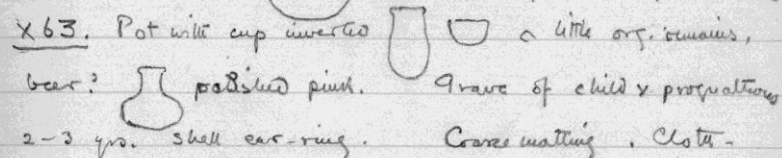 X63. Pot with cup inverted a little org. remains,
beer? polished pink. Grave of child x prognathous
2-3 yrs. Shell ear-ring. Coarse matting. Cloth-